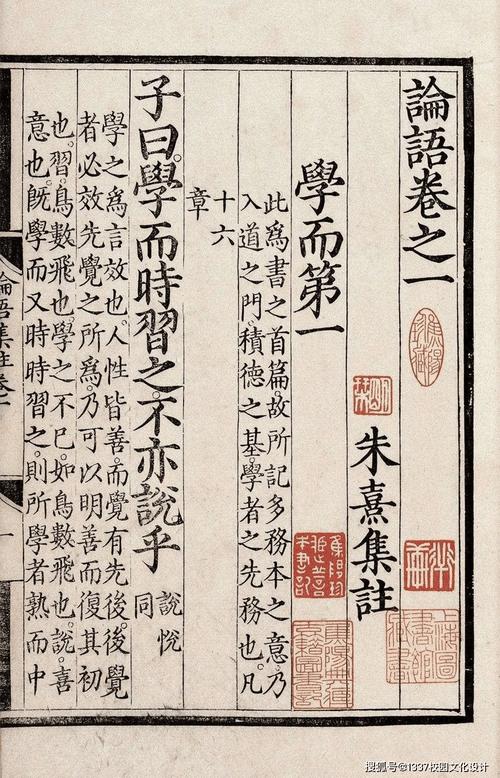 論語卷之一
朱熹集註
學而第一
此爲書之首篇。故所記多務本之意。乃
入道之門。積德之基。學者之先務也。凡
十六
章
子曰。學而時習之。不亦說乎
說悅
同
學之爲言效也。人性皆善。而覺有先後。後覺
者必效先覺之所爲。乃可以明善而復其初
也。習。鳥數飛也。學之不已。如鳥數飛也。說。喜
意也。旣學而又時時習之。則所學者熟。而中
論語集註卷一
一
搜狐号@1337校园文化设计